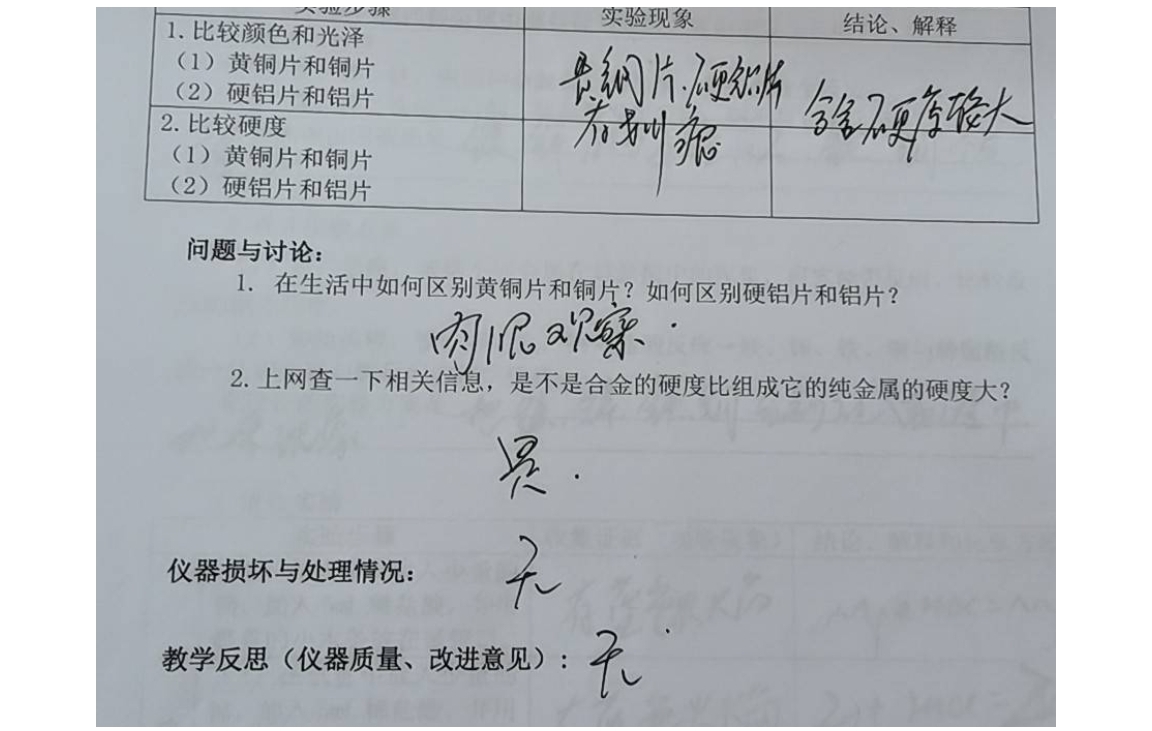 实验步骤 实验现象 结论、解释
1.比较颜色和光泽
(1)黄铜片和铜片
(2)硬铝片和铝片
2.比较硬度
(1)黄铜片和铜片
(2)硬铝片和铝片
铜片.硬铝片
有划痕
合金硬度较大
问题与讨论:
1. 在生活中如何区别黄铜片和铜片?如何区别硬铝片和铝片?
肉眼观察.
2.上网查一下相关信息,是不是合金的硬度比组成它的纯金属的硬度大?
是.
仪器损坏与处理情况: 无
教学反思(仪器质量、改进意见): 无